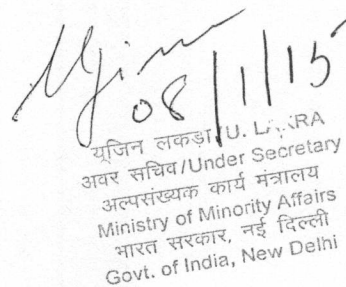 08/1/15
यूजिन लकड़ा/U.
अवर सचिव/Under Secretary
अल्पसंख्यक कार्य मंत्रालय
Ministry of Minority Affairs
भारत सरकार, नई दिल्ली
Govt. of India, New Delhi